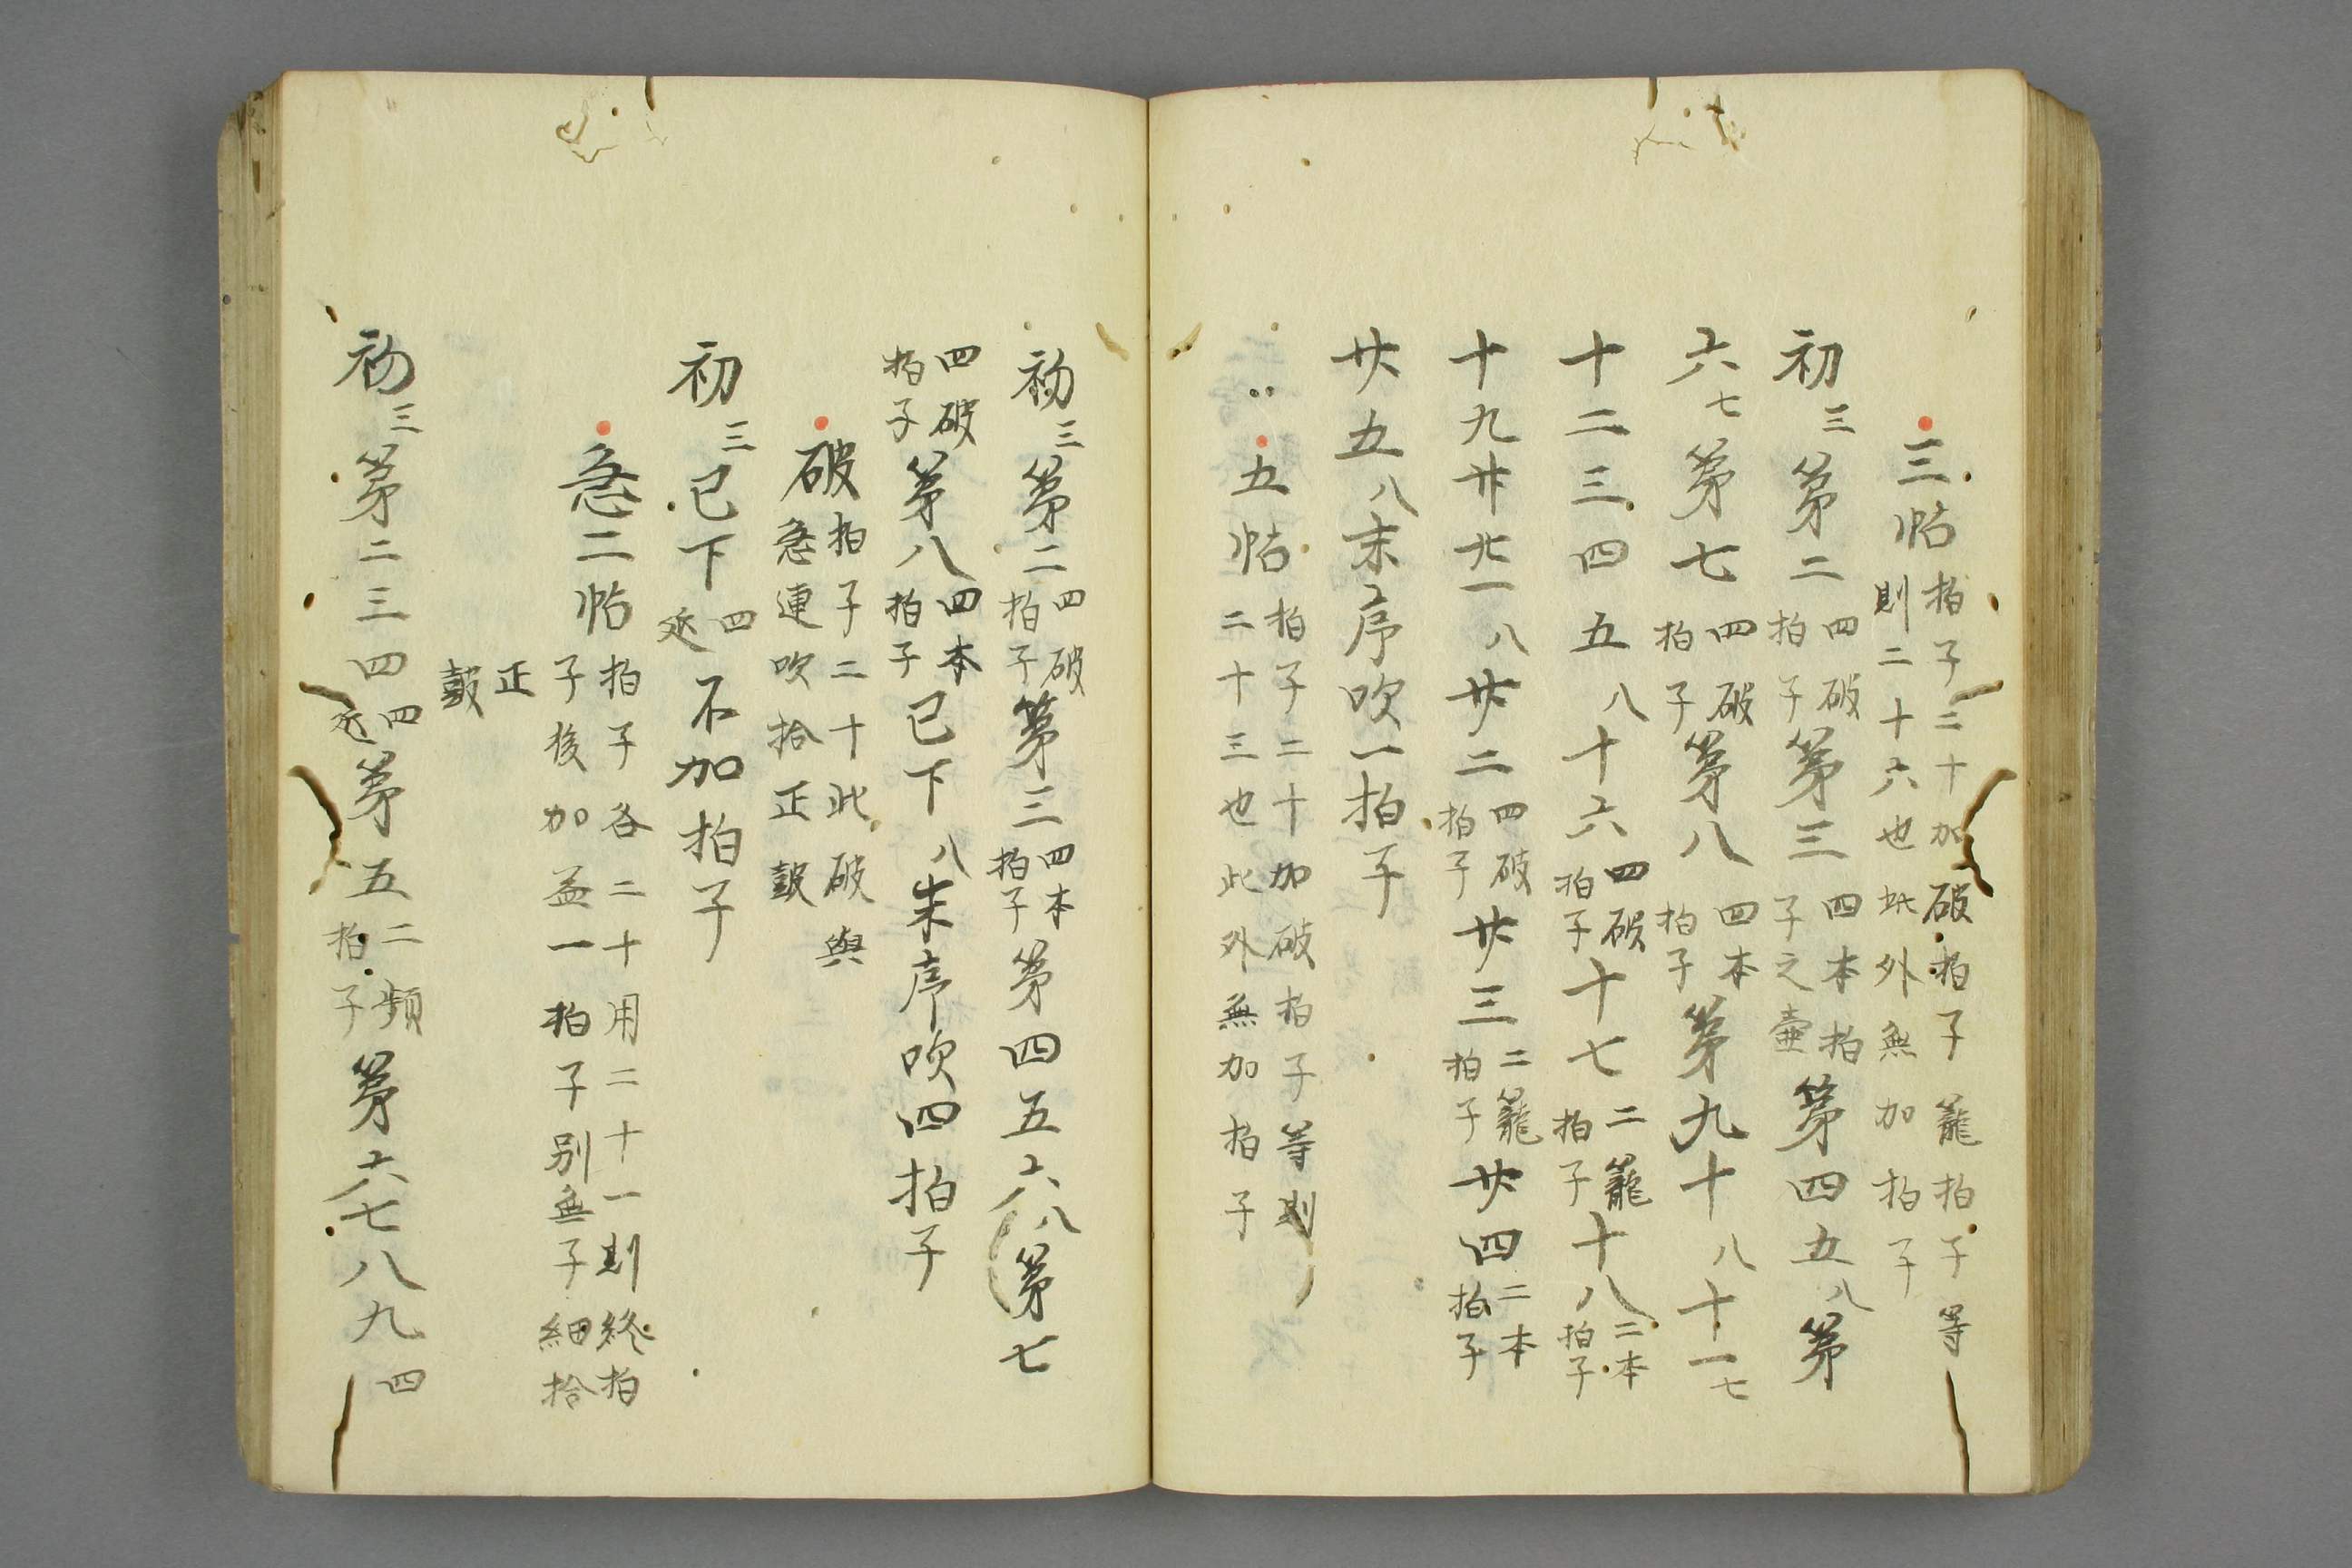 三帖 拍子二十加破拍子籠拍子等
則二十六也此外無加拍子
初三第二四破拍子第三四本拍子之壷第四五八第
六七第七四破拍子第八四本拍子第九十八十一七
十二三四五八十六四破拍子十七二籠拍子十八二本拍子
十九廿廿一八廿二四破拍子廿三二籠拍子廿四二本拍子
廿五八末序吹一拍子
五帖 拍子二十加破拍子等則
二十三也此外無加拍子
初三第二四破拍子第三四本拍子第四五六八第七
四破拍子第八四本拍子已下八末序吹四拍子
破 拍子二十此破與
急連吹拾正鼓
初三已下四延不加拍子
急二帖 拍子各二十用二十一則終拍
子後加益一拍子別無子細拾
正
鼓
初三第二三四四延第五二頻拍子第六七八九四